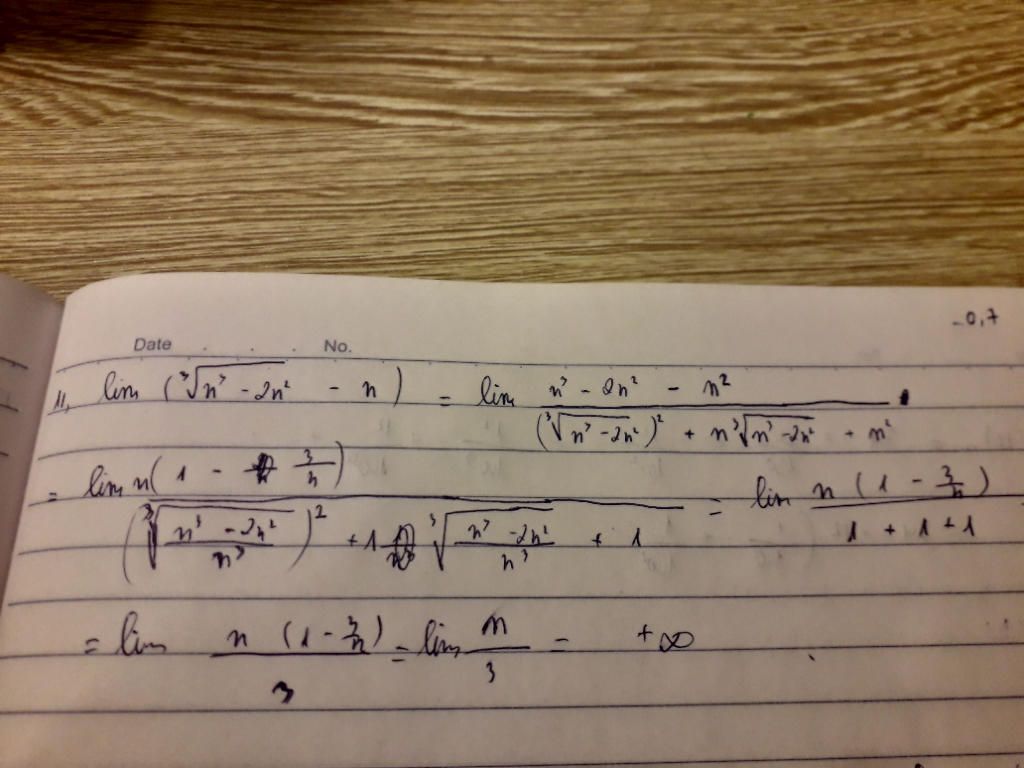 -0,7
Date . . . No.
11, lim (∛(n³ - 2n²) - n) = lim (n³ - 2n² - n²) / ((∛(n³ - 2n²))² + n∛(n³ - 2n²) + n²)
= lim n(1 - 3/n) / ((∛((n³ - 2n²)/n³))² + 1 ∛((n³ - 2n²)/n³) + 1) = lim n(1 - 3/n) / (1 + 1 + 1)
= lim n(1 - 3/n) / 3 = lim n/3 = +∞